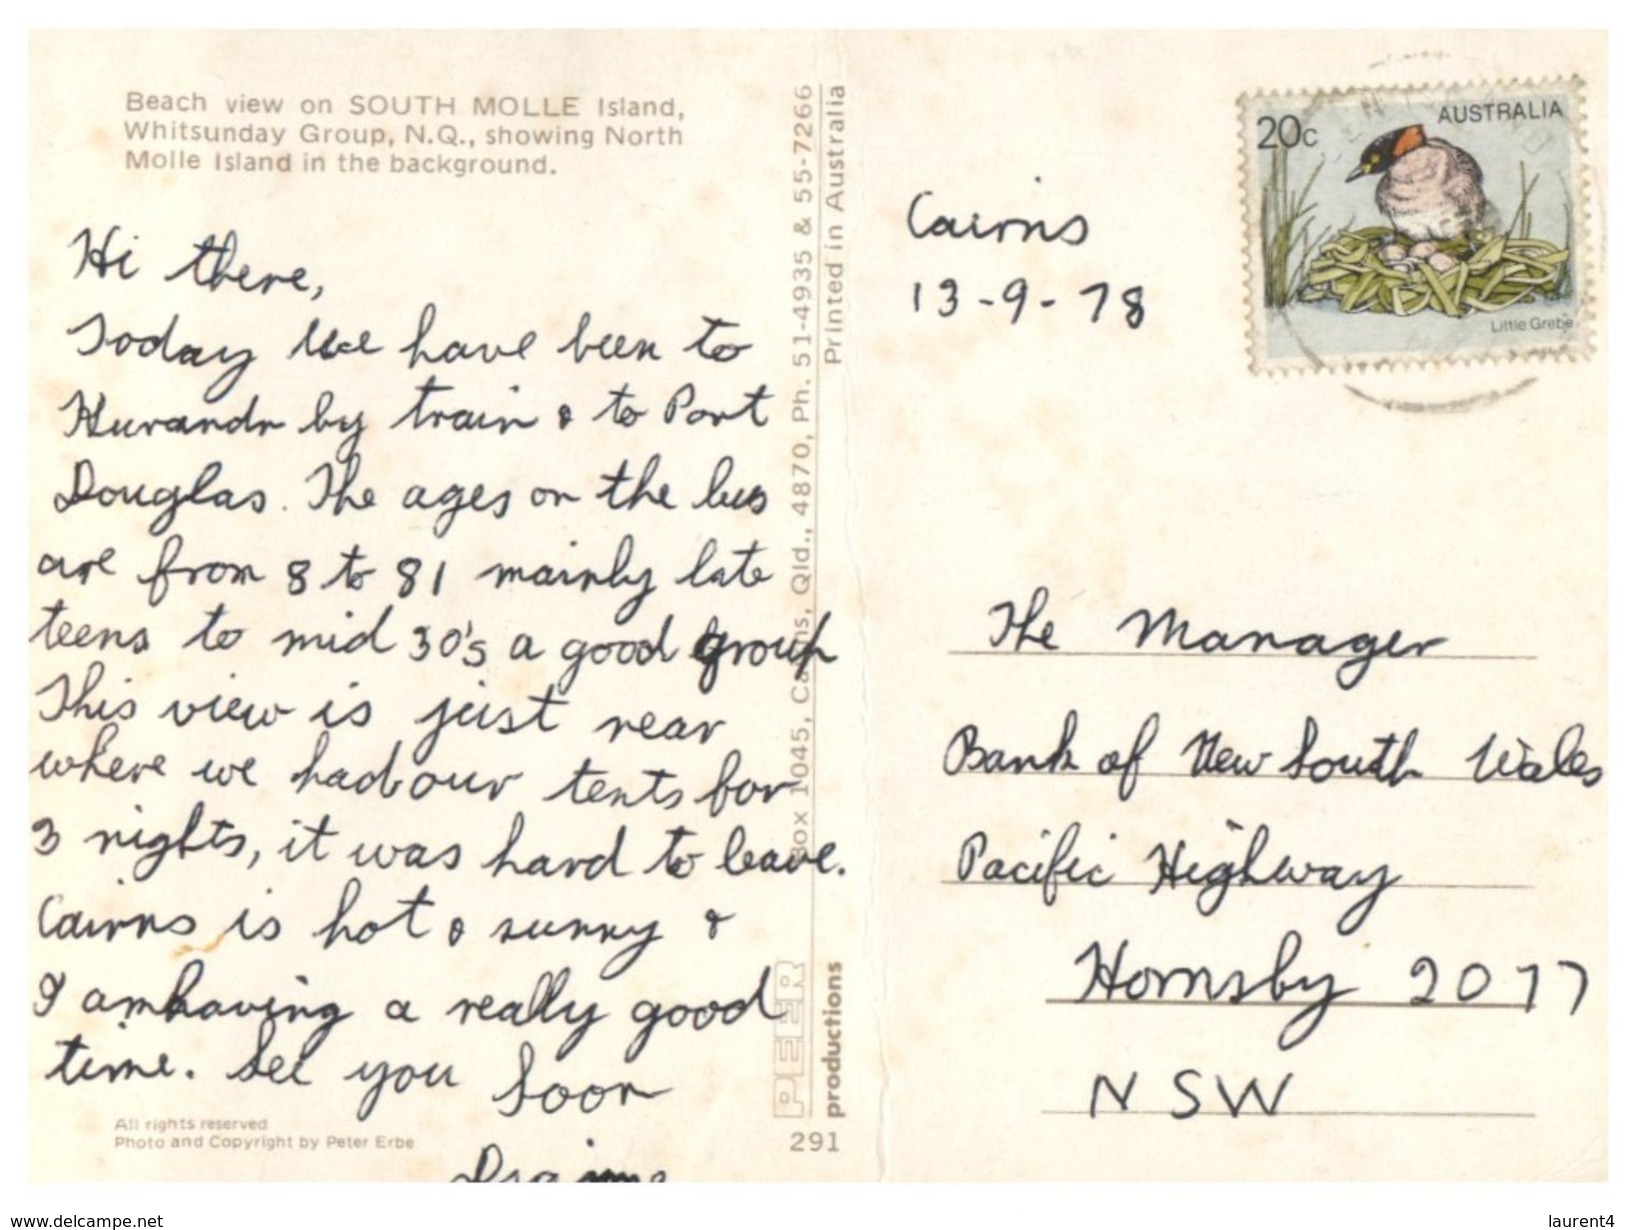 Beach view on SOUTH MOLLE Island,
Whitsunday Group, N.Q., showing North
Molle Island in the background.
Hi there,
Today we have been to
Kurandr by train & to Port
Douglas. The ages on the bus
are from 8 to 81 mainly late
teens to mid 30's a good group
This view is just near
where we had our tents for
3 nights, it was hard to leave.
Cairns is hot & sunny &
I am having a really good
time. See you Soon
All rights reserved
Photo and Copyright by Peter Erbe
Box 1045, Cairns, Qld., 4870, Ph. 51-4935 & 55-7266
Printed in Australia
PEER
productions
291
Cairns
13-9-78
AUSTRALIA
20c
Little Grebe
The Manager
Bank of New South Wales
Pacific Highway
Hornsby 2077
NSW
www.delcampe.net
laurent4